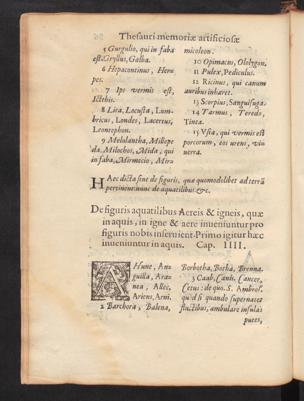 Thesauri memoriæ artificiosæ
5 Gurgulio, qui in faba
est. Gryllus, Galba.
6 Hepacontinus, Heru
pes.
7 Ipo vermis est,
Icthis.
8 Lira, Locusta, Lum-
bricus, Londes, Lacertus,
Leontophon.
9 Melolantha, Millepe
da. Milochos, Mida, qui
in faba, Mirmecio, Miru
micoleon.
10 Opimacus, Olofygon.
11 Pulex, Pediculus.
12 Ricinus, qui canum
auribus inhæret.
13 Scorpius, Sanguisuga.
14 Tarmus, Teredo,
Tinea.
15 Vsia, qui vermis est
porcorum, eos urens, viu
uerra.
Hæc dicta sint de figuris, quæ quomodolibet ad terrã
pertinẽt: nunc de aquatilibus &c.
De figuris aquatilibus Aereis & igneis, quæ
in aquis, in igne & aere inueniuntur pro
figuris nobis inseruient. Primo igitur hæc
inueniuntur in aquis. Cap. IIII.
A Hune, An
guilla, Arao
nea, Allec,
Ariens, Armi.
2 Barchora, Balena,
Borbotha, Botha, Brenna.
3 Caab, Canis, Cancer,
Cetus: de quo S. Ambros.
quòd si quando supernatet
fluctibus, ambulare insulas
putes,